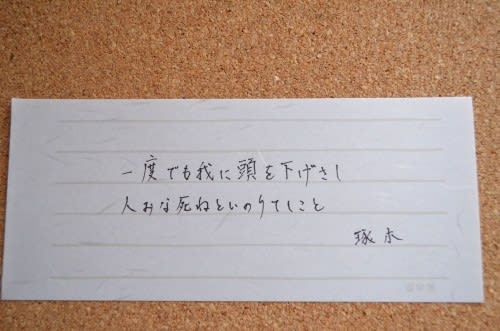 一度でも我に頭を下げさし
人みな死ねといのりてしこと
啄木